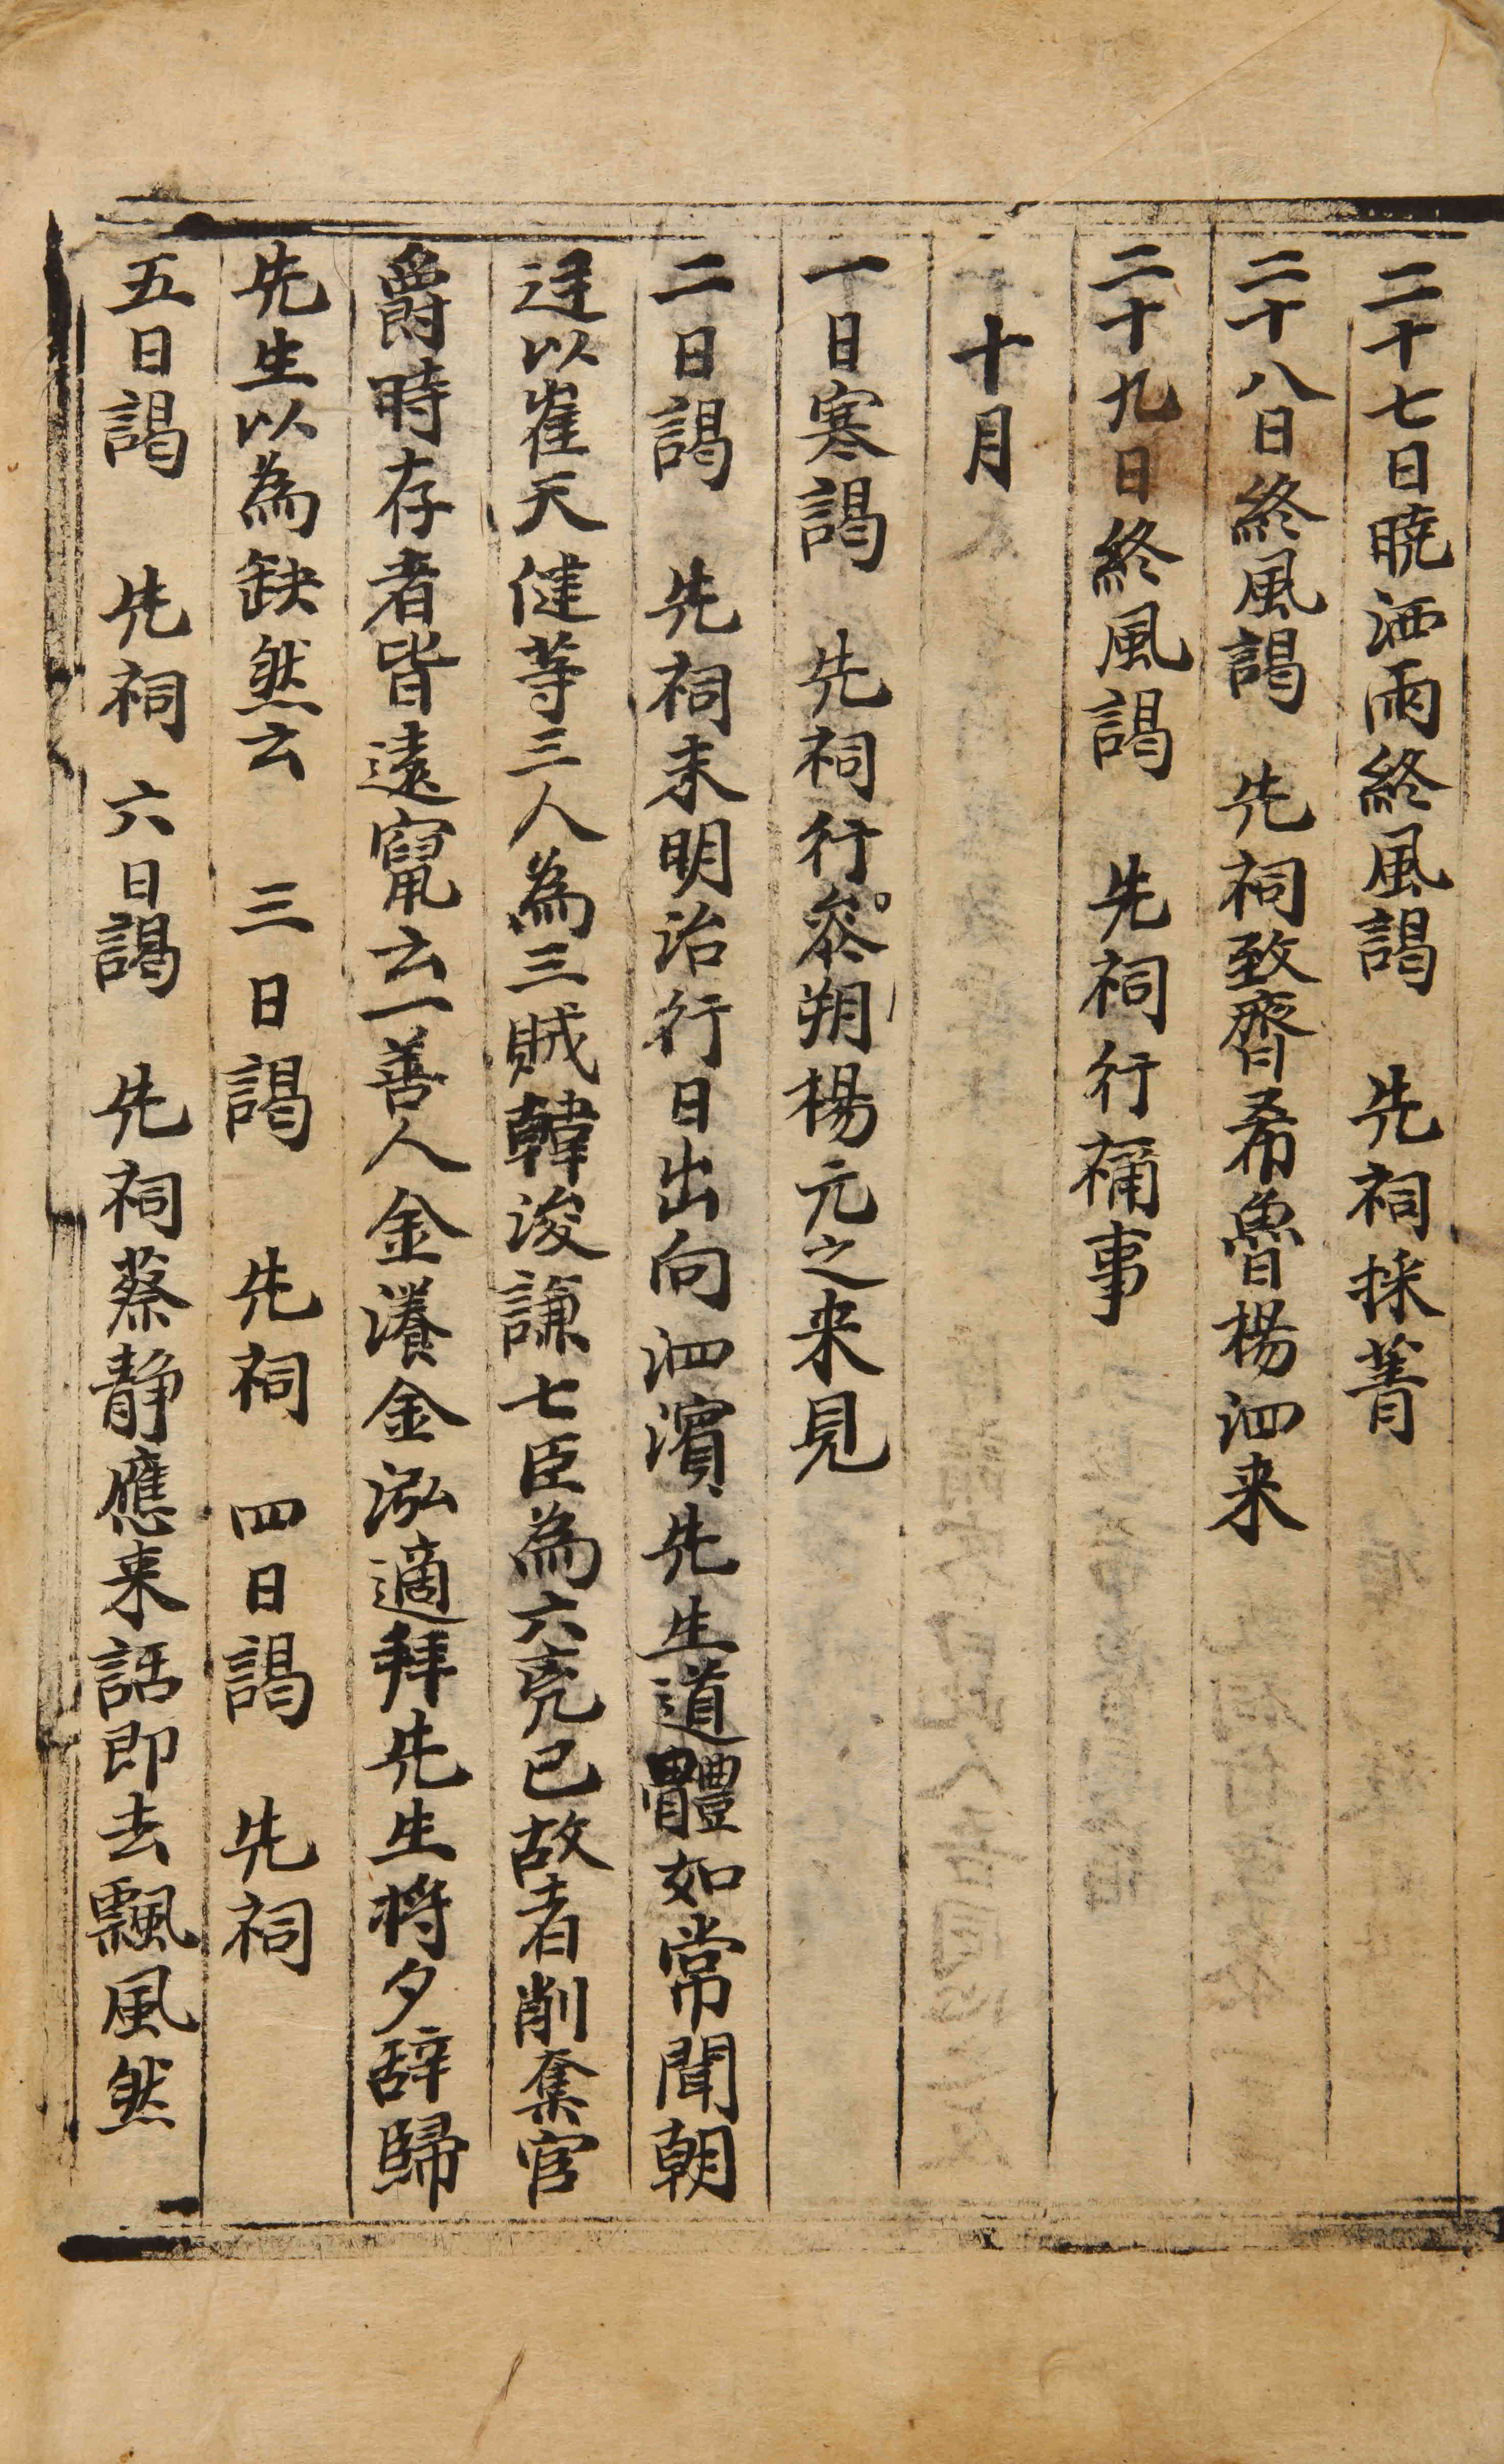 二十七日暁洒雨終風謁　先祠採菁
二十八日終風謁　先祠致齊希魯楊泗来
二十九日終風謁　先祠行禰事
十月
一日寒謁　先祠行叅朔楊元之来見
二日謁　先祠未明治行日出向泗濱先生道體如常聞朝
廷以崔天健等三人為三賊韓浚謙七臣為六兇已故者削奪官
爵時存者皆遠竄云一善人金瀁金泓適拜先生将夕辞歸
先生以為缺然云　三日謁　先祠　四日謁　先祠
五日謁　先祠　六日謁　先祠蔡静應来話即去飄風然